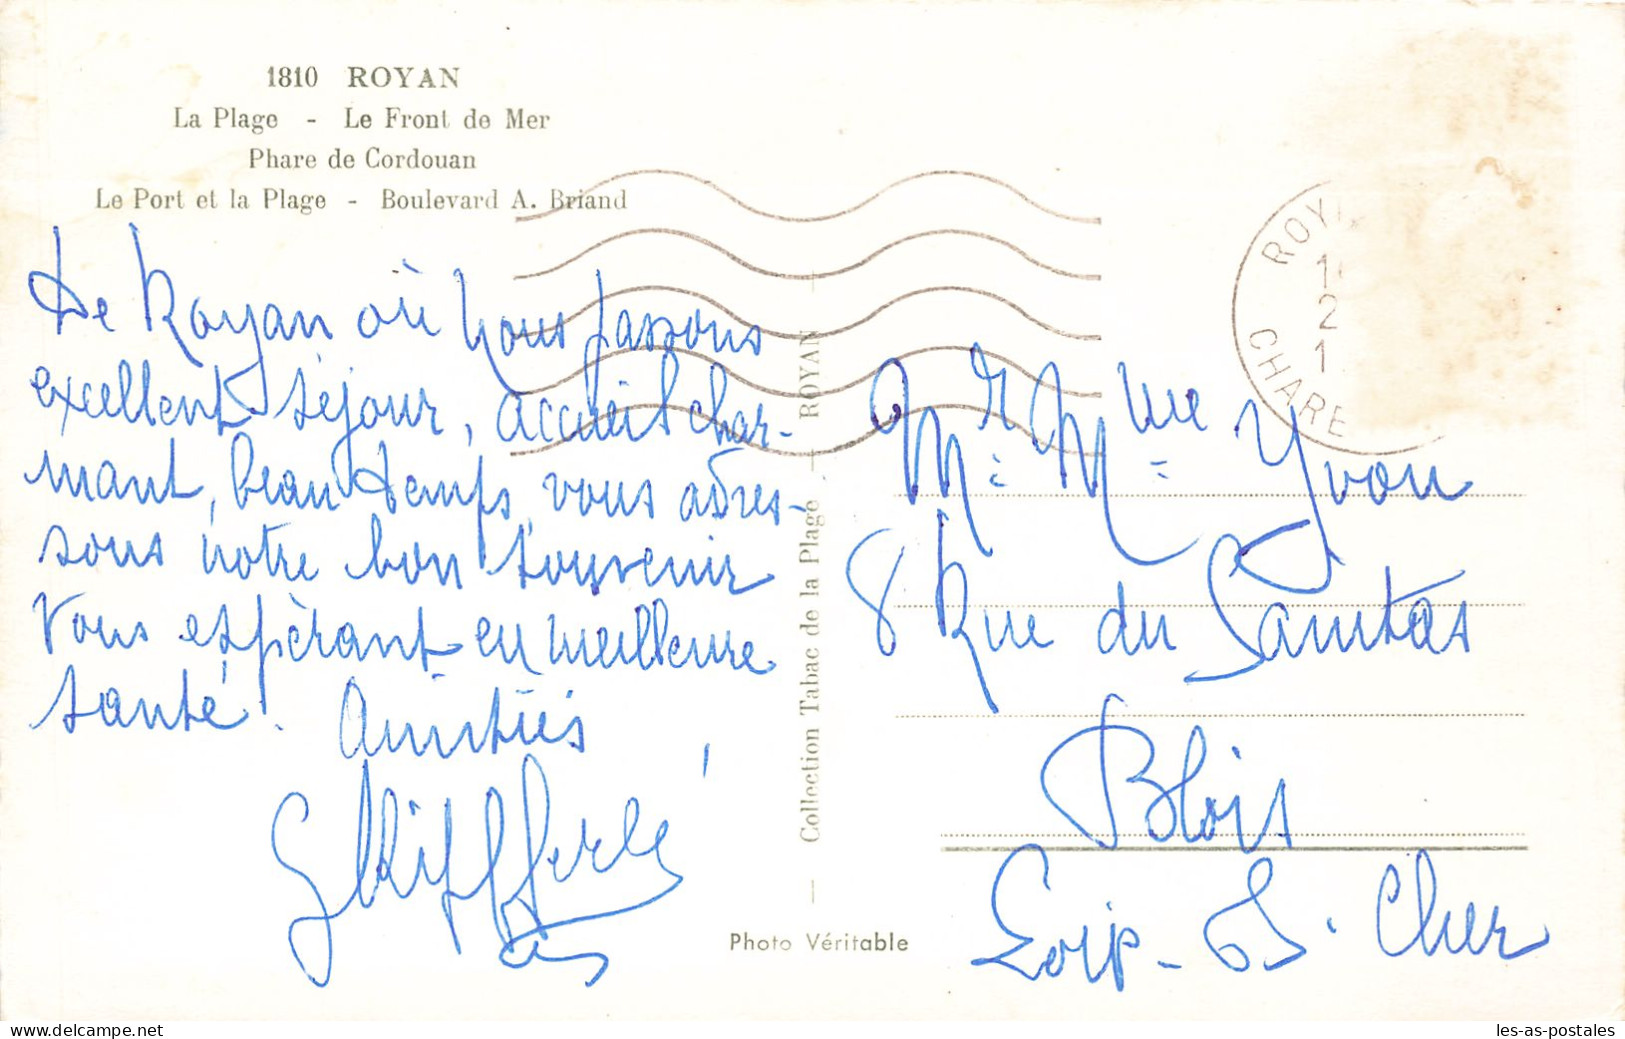 1810 ROYAN
La Plage - Le Front de Mer
Phare de Cordouan
Le Port et la Plage - Boulevard A. Briand
De Royan où nous passons
excellent séjour, accueil char-
mant, beau temps, vous adres-
sons notre bon souvenir
Vous espérant en meilleure
santé. Amitiés
Collection Tabac de la Plage - ROYAN
Photo Véritable
ROY
1
2
1
CHARE
Mr. Mme Yvon
8 Rue du
Blois
Loir-et-Cher
www.delcampe.net
les-as-postales